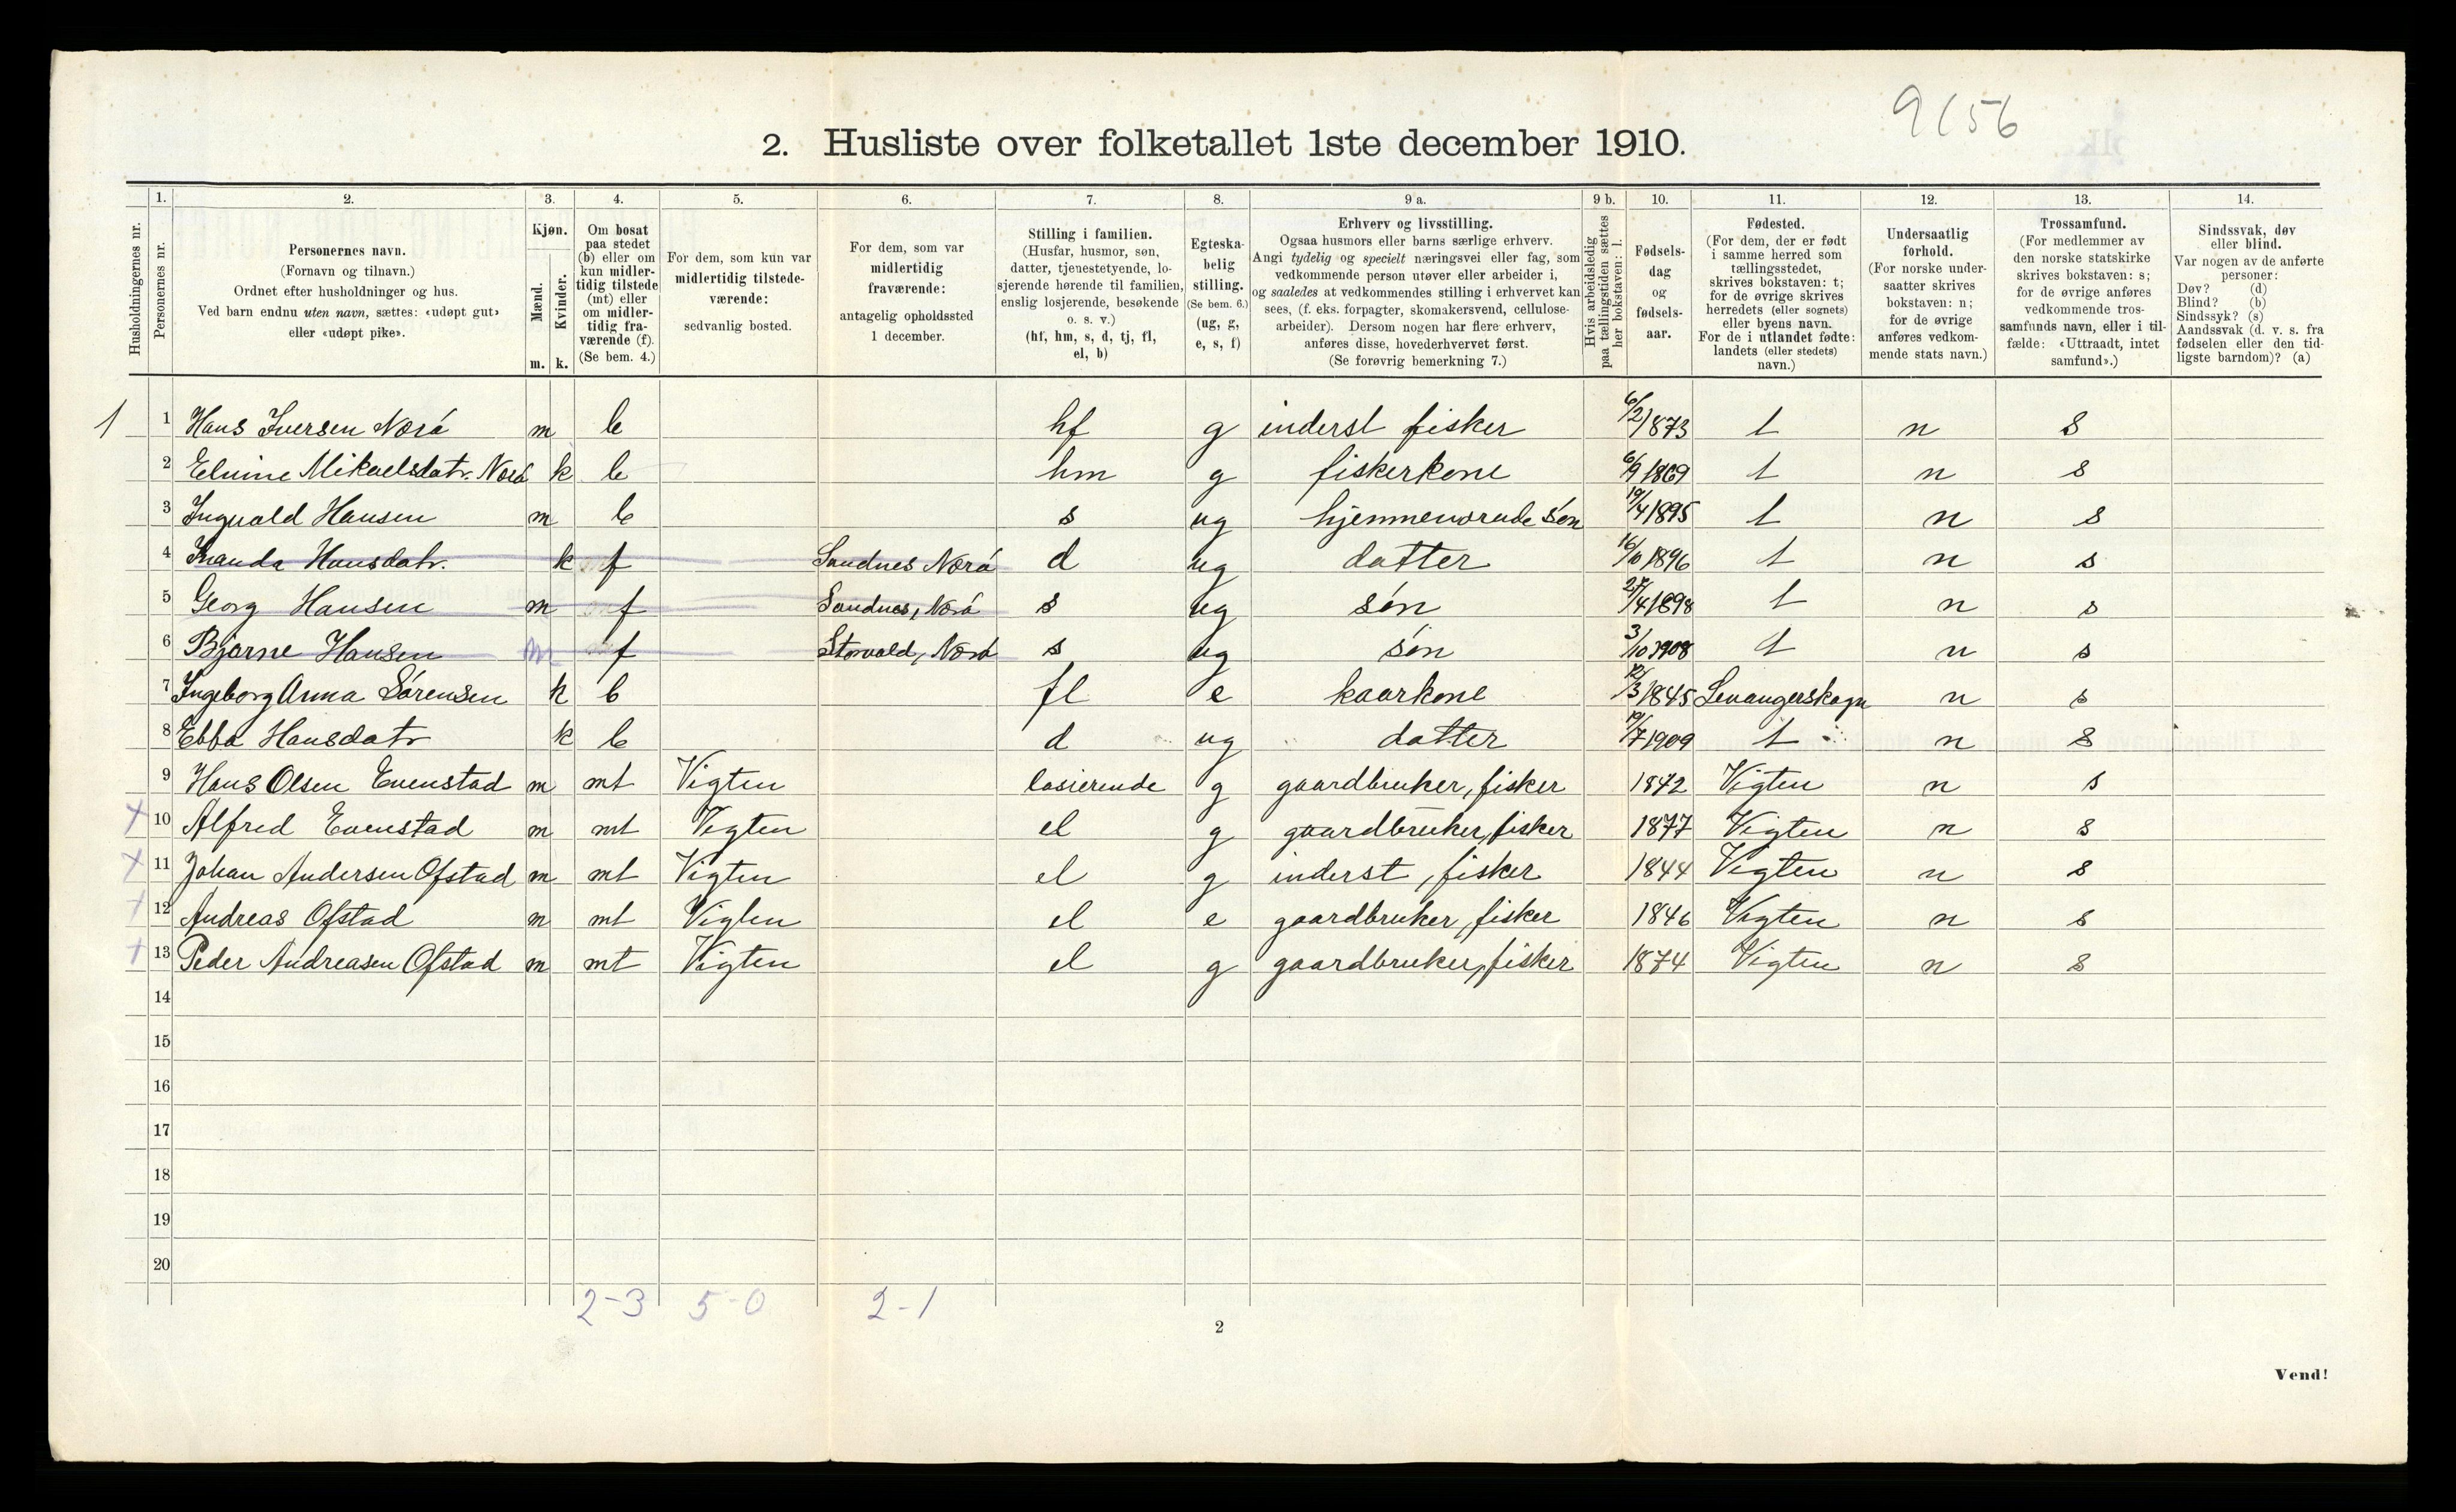 9/56
2. Husliste over folketallet 1ste december 1910.
Husholdningernes nr.
1. Personernes nr.
2. Personernes navn. (Fornavn og tilnavn.) Ordnet efter husholdninger og hus. Ved barn endnu uten navn, sættes: «udøpt gut» eller «udøpt pike».
3. Kjøn. Mænd. m. Kvinder. k.
4. Om bosat paa stedet (b) eller om kun midlertidig tilstede (mt) eller om midlertidig fraværende (f). (Se bem. 4.)
5. For dem, som kun var midlertidig tilstedeværende: sedvanlig bosted.
6. For dem, som var midlertidig fraværende: antagelig opholdssted 1 december.
7. Stilling i familien. (Husfar, husmor, søn, datter, tjenestetyende, losjerende hørende til familien, enslig losjerende, besøkende o. s. v.) (hf, hm, s, d, tj, fl, el, b)
8. Egteskabelig stilling. (Se bem. 6.) (ug, g, e, s, f)
9 a. Erhverv og livsstilling. Ogsaa husmors eller barns særlige erhverv. Angi tydelig og specielt næringsvei eller fag, som vedkommende person utøver eller arbeider i, og saaledes at vedkommendes stilling i erhvervet kan sees, (f. eks. forpagter, skomakersvend, cellulosearbeider). Dersom nogen har flere erhverv, anføres disse, hovederhvervet først. (Se forøvrig bemerkning 7.)
9 b. Hvis arbeidsledig paa tællingstiden sættes her bokstaven: l.
10. Fødselsdag og fødselsaar.
11. Fødested. (For dem, der er født i samme herred som tællingsstedet, skrives bokstaven: t; for de øvrige skrives herredets (eller sognets) eller byens navn. For de i utlandet fødte: landets (eller stedets) navn.)
12. Undersaatlig forhold. (For norske undersaatter skrives bokstaven: n; for de øvrige anføres vedkommende stats navn.)
13. Trossamfund. (For medlemmer av den norske statskirke skrives bokstaven: s; for de øvrige anføres vedkommende trossamfunds navn, eller i tilfælde: «Uttraadt, intet samfund».)
14. Sindssvak, døv eller blind. Var nogen av de anførte personer: Døv? (d) Blind? (b) Sindssyk? (s) Aandssvak (d. v. s. fra fødselen eller den tidligste barndom)? (a)
1 1 Hans Iversen Norö m b hf g inderst fisker 6/2 1873 t n s
2 Elvine Mikaelsdatr. Norö k b hm g fiskerkone 6/9 1869 t n s
3 Ingvald Hansen m b s ug hjemmeværende sön 19/4 1895 t n s
4 Hansdatr. k f Sandnes Norö d ug datter 16/10 1896 t n s
5 Georg Hansen m f Sandnes, Norö s ug sön 27/4 1898 t n s
6 Bjarne Hansen m f Storvold, Norö s ug sön 3/10 1908 t n s
7 Ingeborg Anna Sörensen k b fl e kaarkone /3 1845 Levangerskogn n s
8 Ebba Hansdatr k b d ug datter 19/7 1909 t n s
9 Hans Olsen Evenstad m mt Vigten losierende g gaardbruker, fisker 1872 Vigten n s
10 Alfred Evenstad m mt Vigten el g gaardbruker, fisker 1877 Vigten n s
11 Johan Andersen Ofstad m mt Vigten el g inderst, fisker 1844 Vigten n s
12 Andreas Ofstad m mt Vigten el e gaardbruker, fisker 1846 Vigten n s
13 Peder Andreasen Ofstad m mt Vigten el g gaardbruker, fisker 1874 Vigten n s
14
15
16
17
18
19
20
2-3 5-0 2-1
2
Vend!